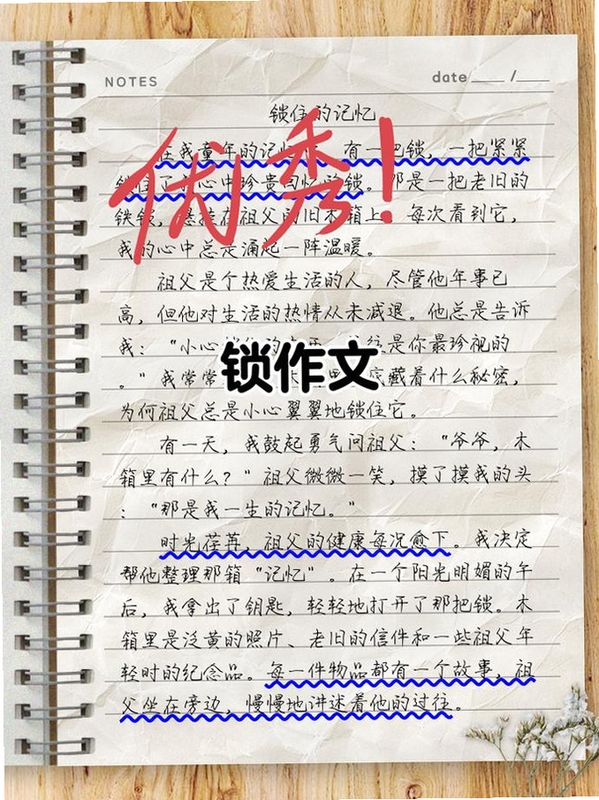 NOTES
date ___ /___
锁住的记忆
在我童年的记忆 ，有一把锁，一把紧紧
心中珍贵回忆的锁。那是一把老旧的
铁锁，悬挂在祖父的旧木箱上。每次看到它，
我的心中总是涌起一阵温暖。
优秀！
祖父是个热爱生活的人，尽管他年事已
高，但他对生活的热情从未减退。他总是告诉
我：“小心 是你最珍视的
锁作文
。”我常常 藏着什么秘密，
为何祖父总是小心翼翼地锁住它。
有一天，我鼓起勇气问祖父：“爷爷，木
箱里有什么？”祖父微微一笑，摸了摸我的头
：“那是我一生的记忆。”
时光荏苒，祖父的健康每况愈下。我决定
帮他整理那箱“记忆”。在一个阳光明媚的午
后，我拿出了钥匙，轻轻地打开了那把锁。木
箱里是泛黄的照片、老旧的信件和一些祖父年
轻时的纪念品。每一件物品都有一个故事，祖
父坐在旁边，慢慢地讲述着他的过往。